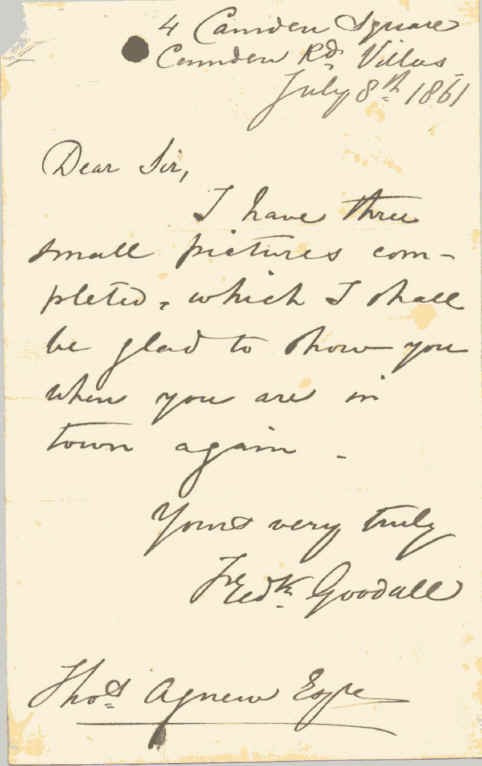 4 Camden Square
Camden Rd. Villas
July 8th 1861
Dear Sir,
I have three
small pictures com-
pleted, which I shall
be glad to show you
when you are in
town again.
Yours very truly
Fredk. Goodall
Thos. Agnew Esqre